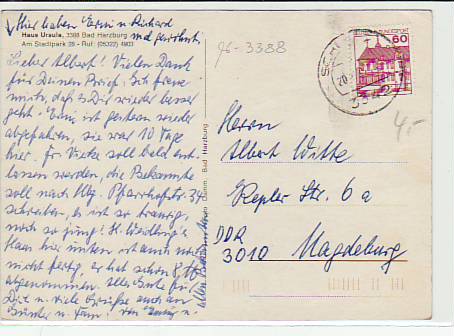 Hier haben Erwin u. Richard
mal gewohnt.
Haus Ursula, 3388 Bad Harzburg
Am Stadtpark 28 - Ruf: (05322) 4903
Lieber Albert! Vielen Dank
für Deinen Brief. Ich freue
mich, daß es Dir wieder besser
geht. ist gestern wieder
abgefahren, sie war 10 Tage
hier. Fr. soll bald ent-
lassen werden, die Bekannte
soll nach Mbg. Pfarrhofstr. 34
schreiben, es ist so traurig,
noch so jung! K.
Haus hier unten ist auch noch
nicht fertig, er hat schon
abgenommen. Alles Gute für
Dich u. viele Grüße auch an
u. Fam. von
allen Bekannten
96-3388
60
3342
4,-
Herrn
Albert Witte
Kepler Str. 6a
DDR
3010 Magdeburg